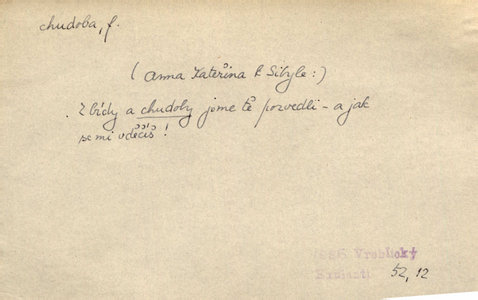 chudoba, f.
(Anna Kateřina k Sibyle:)
Z bídy a chudoby jsme tě pozvedli - a jak
se mi vděčíš!
Vrchlický
52, 12